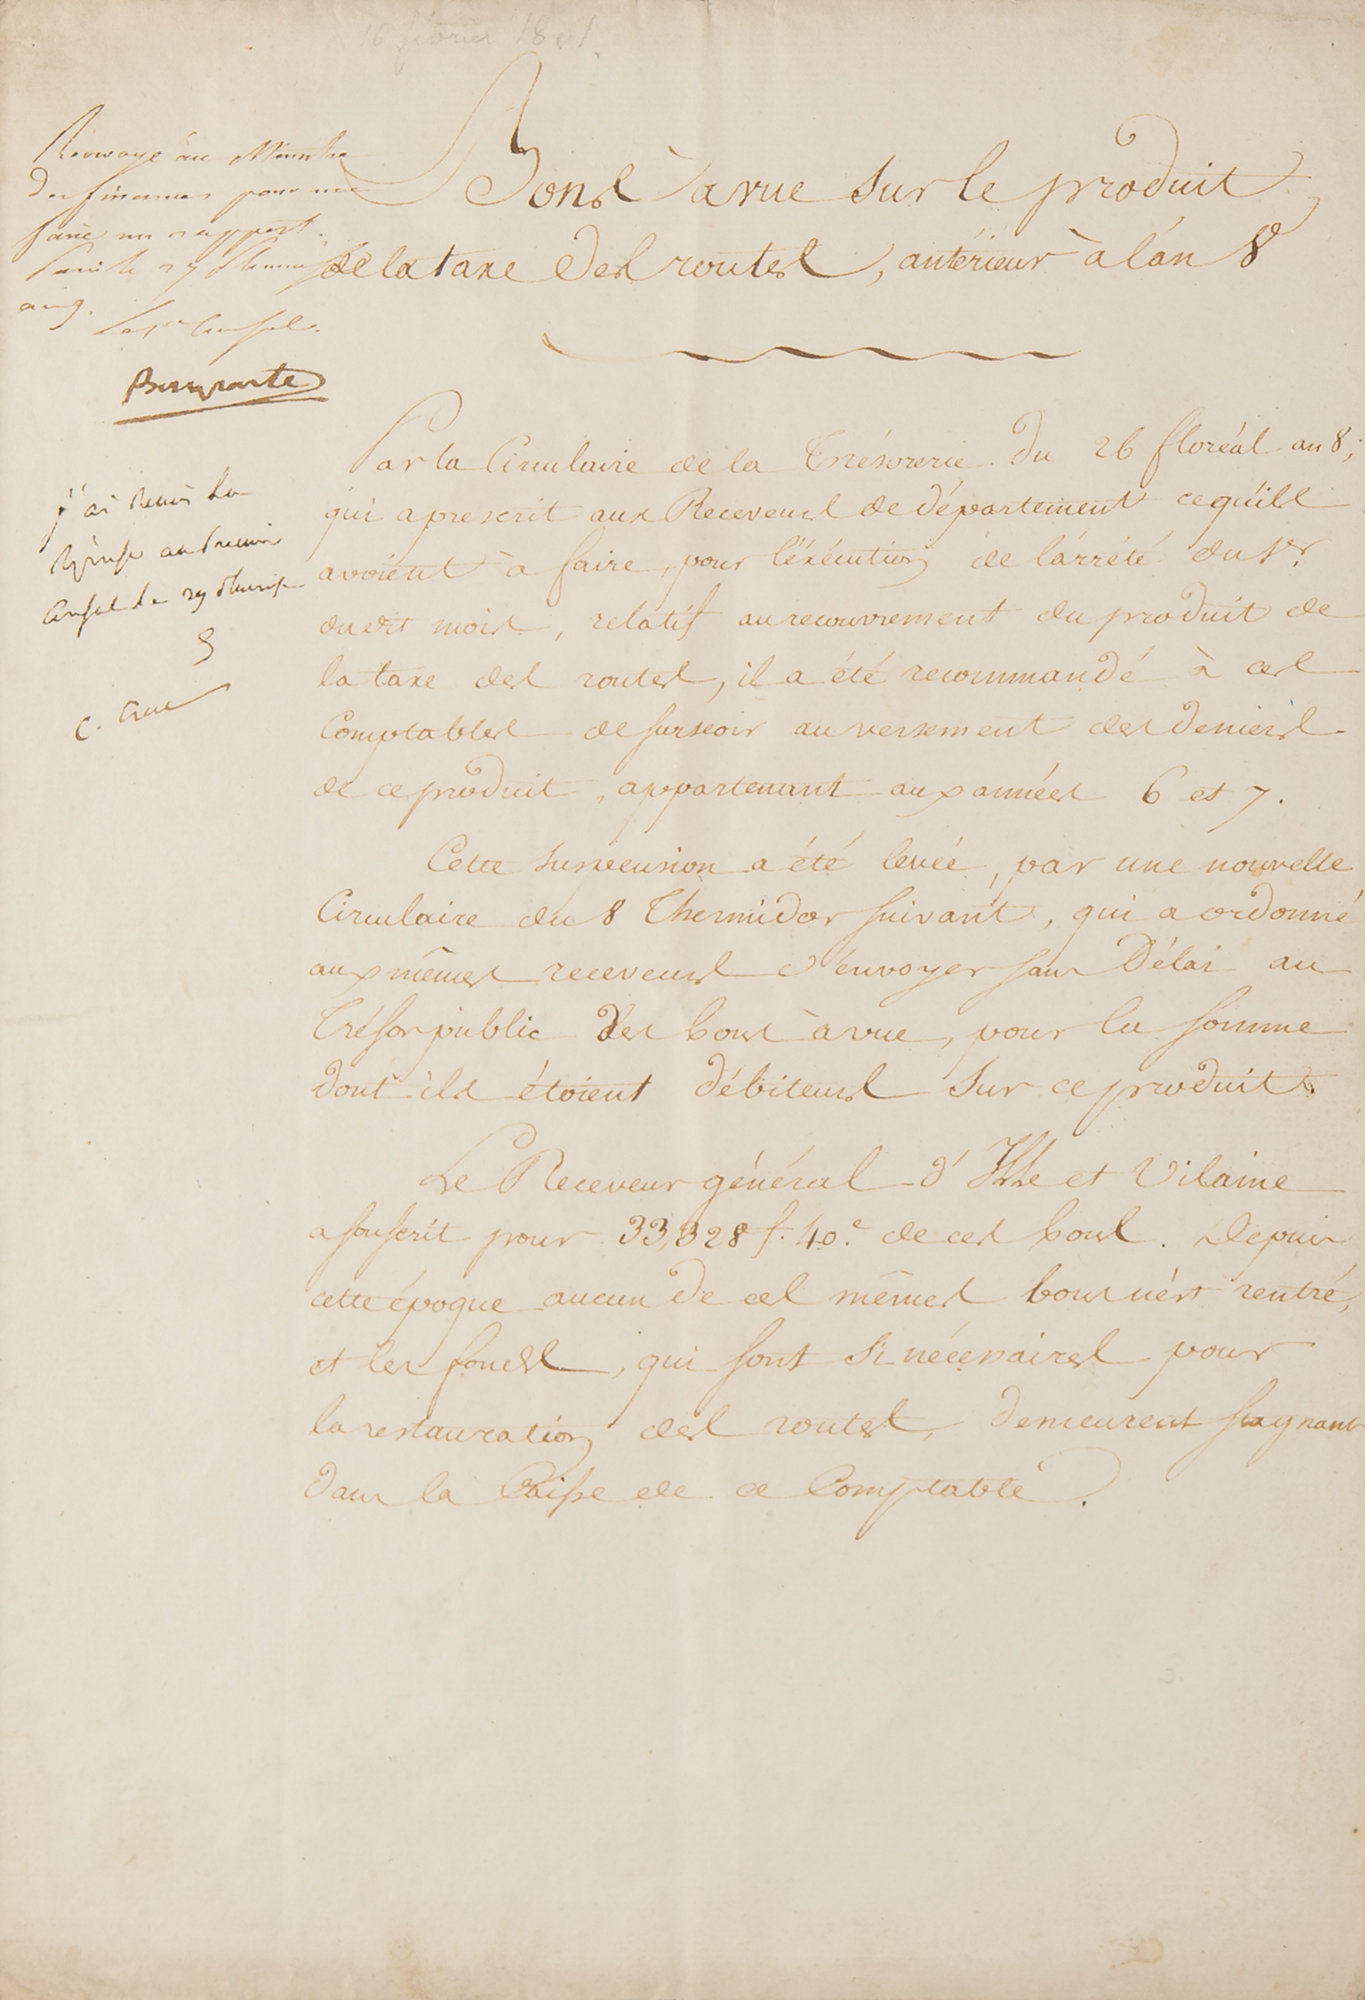 16 février 1801.
Renvoyé au Ministre
des finances pour me
faire un rapport.
Paris le 27 pluviôse
an 9.
Le 1er Consul.
Bonaparte
j'ai remis la
réponse au premier
Consul le 29 pluviose
9
Bons à vue sur le produit
de la taxe des routes, antérieur à l'an 8
Par la Circulaire de la Trésorerie du 26 floréal an 8,
qui a prescrit aux Receveurs de département ce qu'ils
avoient à faire, pour l'éxécution de l'arrêté du 1er
dudit mois, relatif au recouvrement du produit de
la taxe des routes, il a été recommandé à ces
Comptables de surseoir au versement des deniers
de ce produit, appartenant aux années 6 et 7.
Cette suspension a été levée, par une nouvelle
Circulaire du 8 Thermidor suivant, qui a ordonné
aux mêmes receveurs d'envoyer sans Délai au
Trésor public des bons à vue, pour la somme
dont ils étoient débiteurs sur ce produit.
Le Receveur général d'Ille et Vilaine
a souscrit pour 33,328 f. 40 c. de ces bons. Depuis
cette époque aucun de ces mêmes bons n'est rentré,
et les fonds, qui sont si nécessaires pour
la restauration des routes, demeurent stagnant
dans la Caisse de ce Comptable.